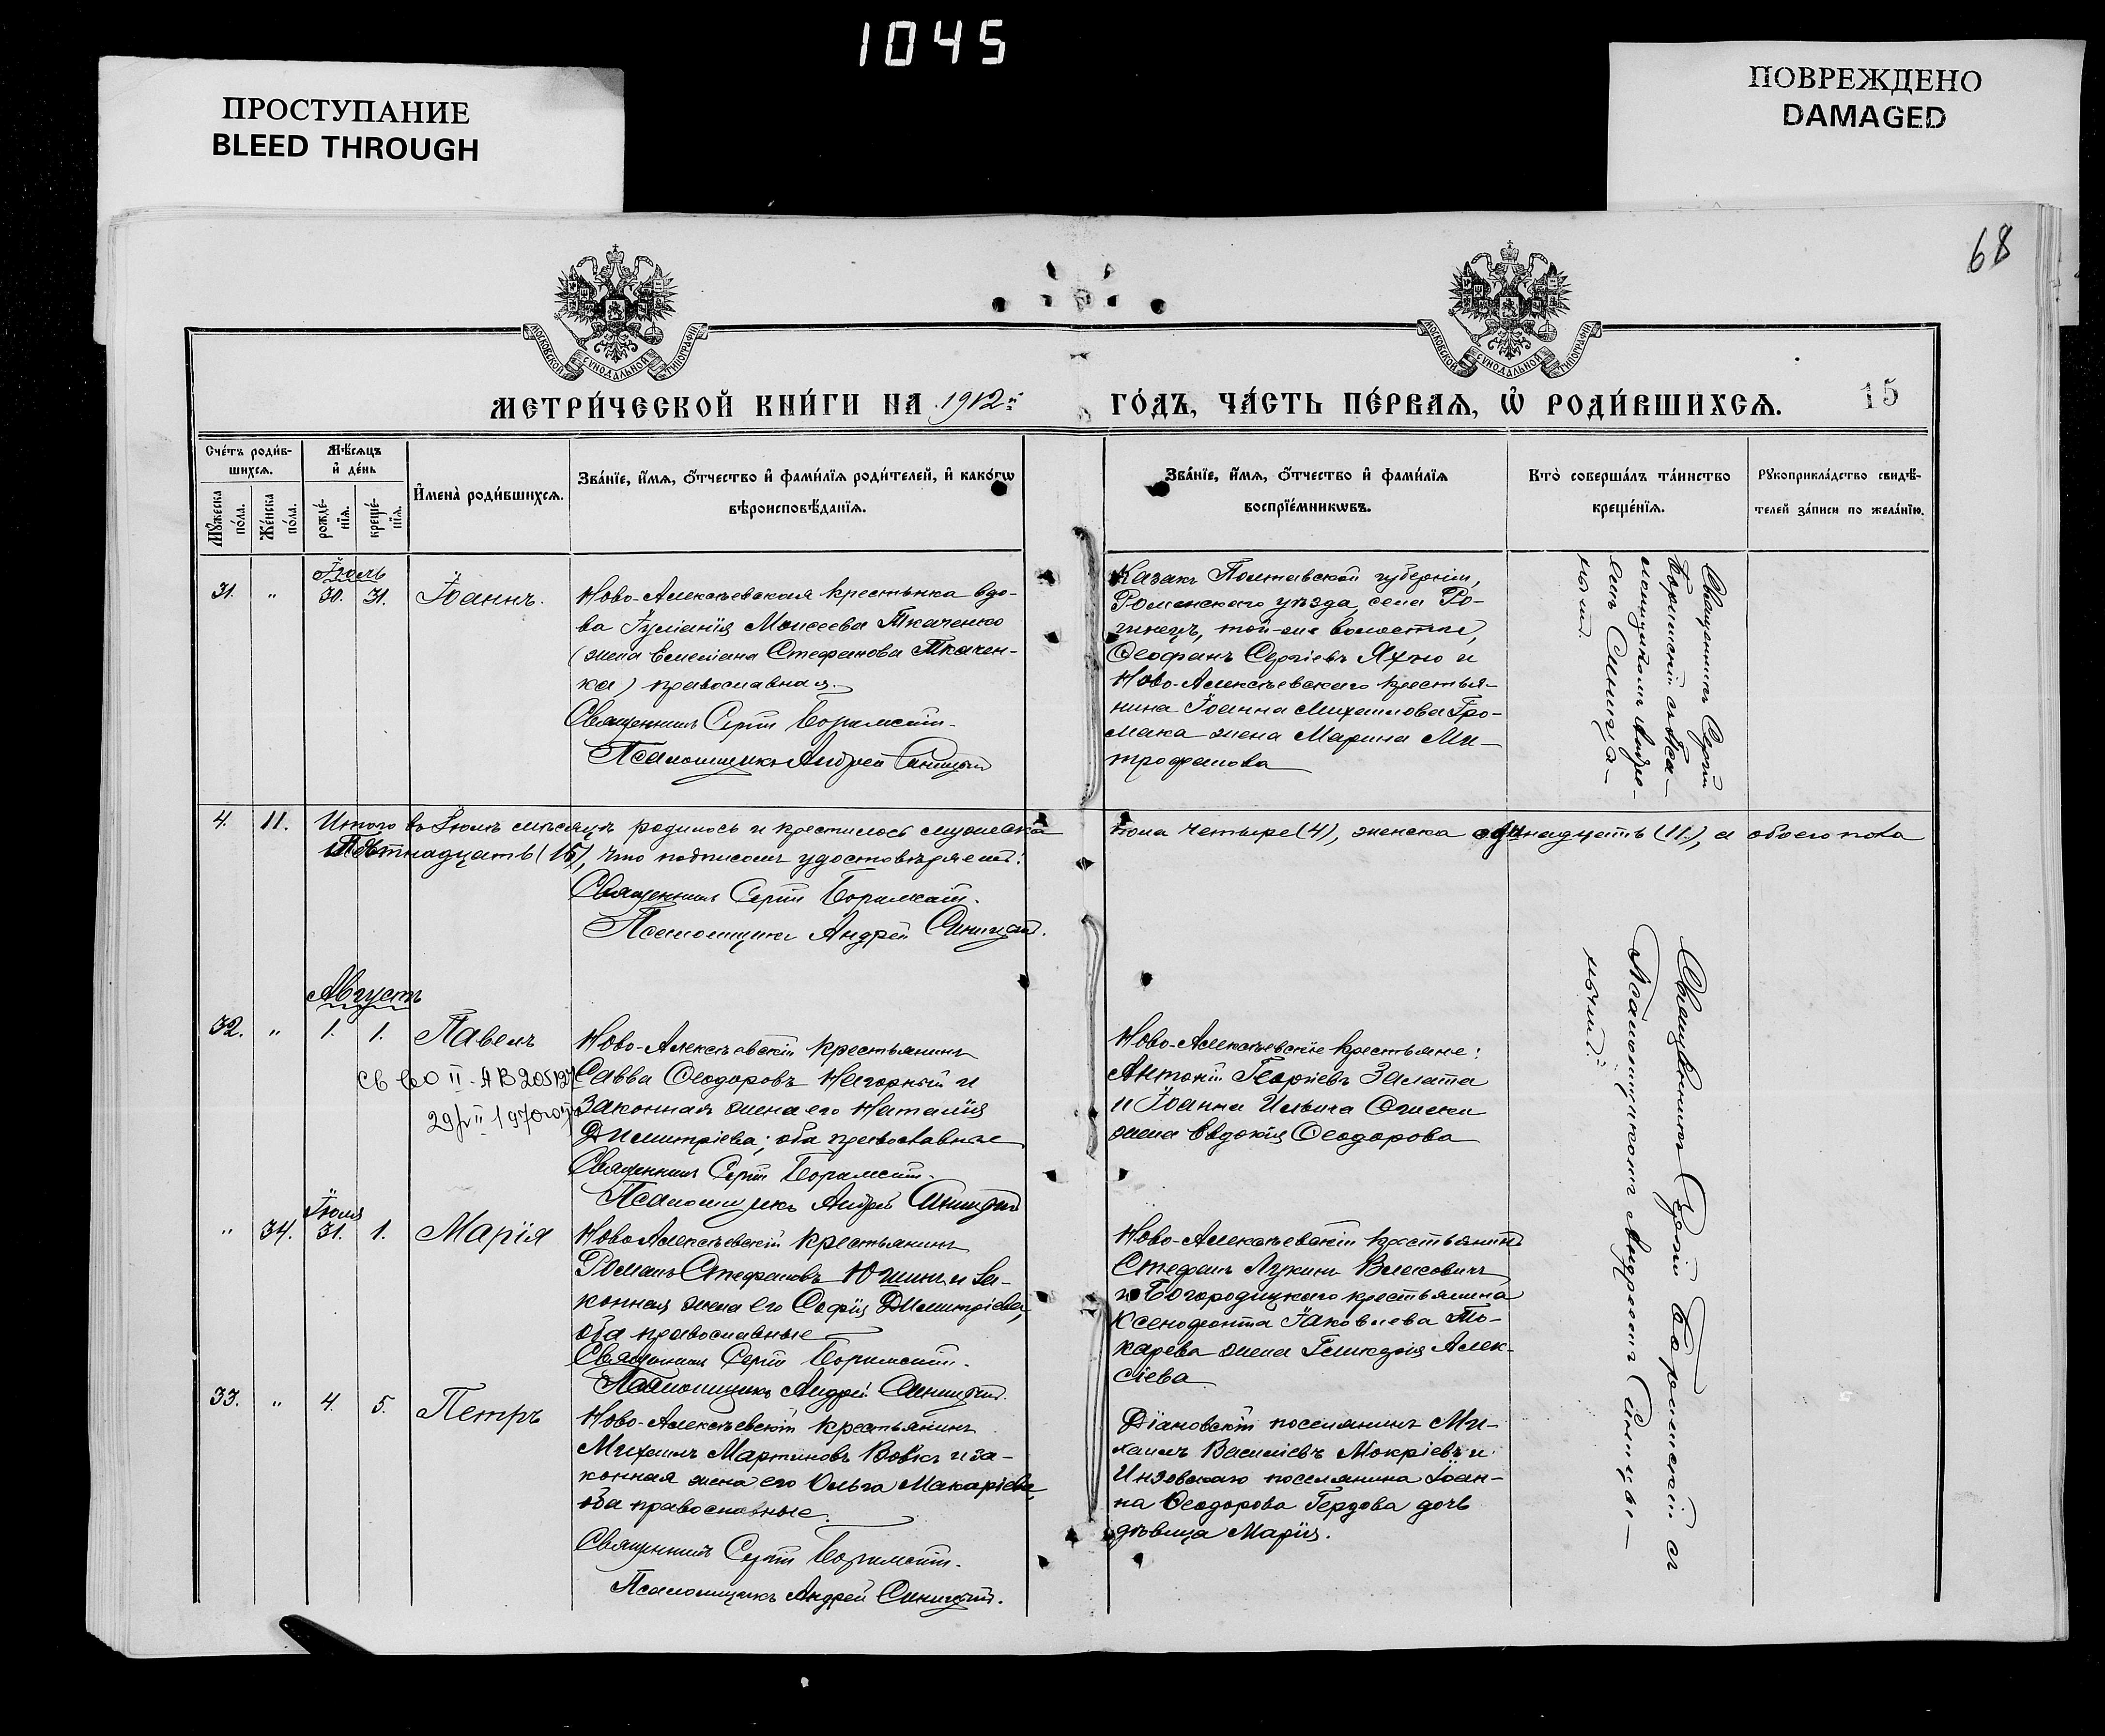 1045
ПРОСТУПАНИЕ
BLEED THROUGH
ПОВРЕЖДЕНО
DAMAGED
68
МОСКОВСКОЙ СѴНОДАЛЬНОЙ ТИПОГРАФІИ
МОСКОВСКОЙ СѴНОДАЛЬНОЙ ТИПОГРАФІИ
МЕТРИ́ЧЕСКОЙ КНИ́ГИ НА 1912й
ГО́ДЪ, ЧА́СТЬ ПЕ́РВАЯ, Ѡ҆ РОДИ́ВШИХСЯ.
15
Сче́тъ роди́в-
шихся.
Мѣ́сяцъ
и҆ де́нь
Мꙋ́жеска
по́ла.
Же́нска
по́ла.
рожде́-
нїя.
креще́-
нїя.
И҆мена̀ роди́вшихся.
Зва́нїе, и҆́мя, ѻ҆́тчество и҆ фами́лїя роди́телей, и҆ како́гѡ
вѣроисповѣ́данїя.
Зва́нїе, и҆́мя, ѻ҆́тчество и҆ фами́лїя
воспрїе́мникѡвъ.
Кто̀ соверша́лъ та́инство
креще́нїя.
Рꙋкоприкла́дство свидѣ́-
телей за́писи по жела́нїю.
Іюль
31. " 30. 31. Іоаннъ.
Ново-Алексѣевская крестьянка вдо-
ва Іуліанія Моисеева Ткаченко
(жена Емеліана Стефанова Ткачен-
ка) православная.
Священникъ Сергій
Псаломщикъ Андрей Синицкій
Казакъ Полтавской губерніи,
Роменскаго уѣзда, села Ро-
гинецъ, той-же волости,
Ѳеофанъ Сергіевъ Яхно и
Ново-Алексѣевскаго крестья-
нина Іоанна Михаилова Гро-
мака жена Марина Ми-
трофанова
Священникъ Сергій
съ Пса-
ломщикомъ Андре-
емъ Синиц-
кимъ.
4. 11. Итого въ Іюлѣ мѣсяцѣ родилось и крестилось мужеска
пола четыре (4), женска одинадцать (11), а обоего пола
Пятнадцать (15), что подписомъ удостовѣряемъ:
Священникъ Сергій
Псаломщикъ Андрей Синицкій.
Августъ
32. " 1. 1. Павелъ
29/ 1970 года
Ново-Алексѣевскій крестьянинъ
Савва Ѳеодоровъ Нагорный и
законная жена его Наталія
Димитріева; оба православные
Священникъ Сергій
Псаломщикъ Андрей Синицкій
Ново-Алексѣевскіе крестьяне:
Антоній Георгіевъ Залата
и Іоанна Ильича
жена Евдокія Ѳеодорова
Священникъ Сергій съ
Псаломщикомъ Андреемъ Синиц-
кимъ.
Іюля
" 34. 31. 1. Марія
Ново-Алексѣевскій крестьянинъ
Романъ Стефановъ Юшинъ и за-
конная жена его Софія Димитріева,
оба православные
Священникъ Сергій
Псаломщикъ Андрей Синицкій.
Ново-Алексѣевскій крестьянинъ
Стефанъ Лукинъ
и Богородицкаго крестьянина
Ксенофонта Іаковлева То-
карева жена Гликерія Алек-
сіева
33. " 4. 5. Петръ
Ново-Алексѣевскій крестьянинъ
Михаилъ Мартиновъ Вовкъ и за-
конная жена его Ольга Макаріева,
оба православные.
Священникъ Сергій
Псаломщикъ Андрей Синицкій.
Діановскій поселянинъ Ми-
хаилъ Василіевъ Мокріевъ и
Инзовскаго поселянина Іоан-
на Ѳеодорова Герзова дочь
дѣвица Марія.